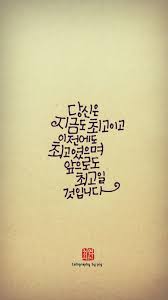 당신은
지금도 최고이고
이전에도
최고였으며
앞으로도
최고일
것입니다
Calligraphy by